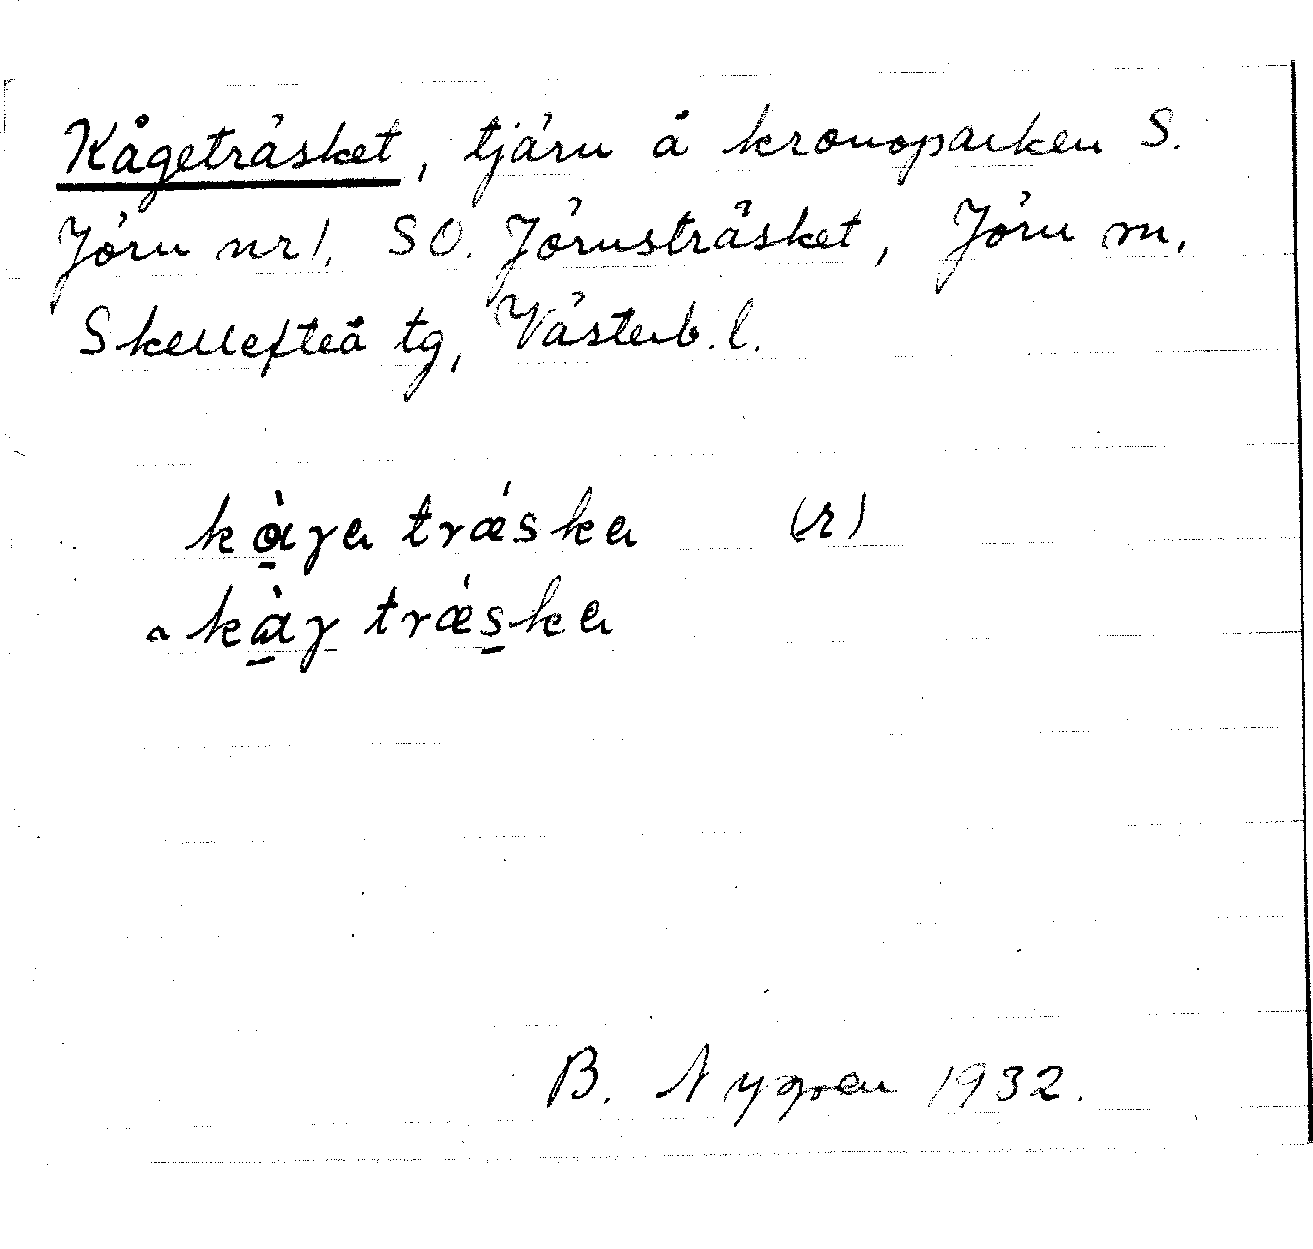 Kågeträsket, tjärn å kronoparken S.
Jörn nr 1, SO. Jörnsträsket, Jörn sn,
Skellefteå tg, Västerb. l.
kàɣa trǽska (r)
~ kàɣ trǽska
B. Nygren 1932.